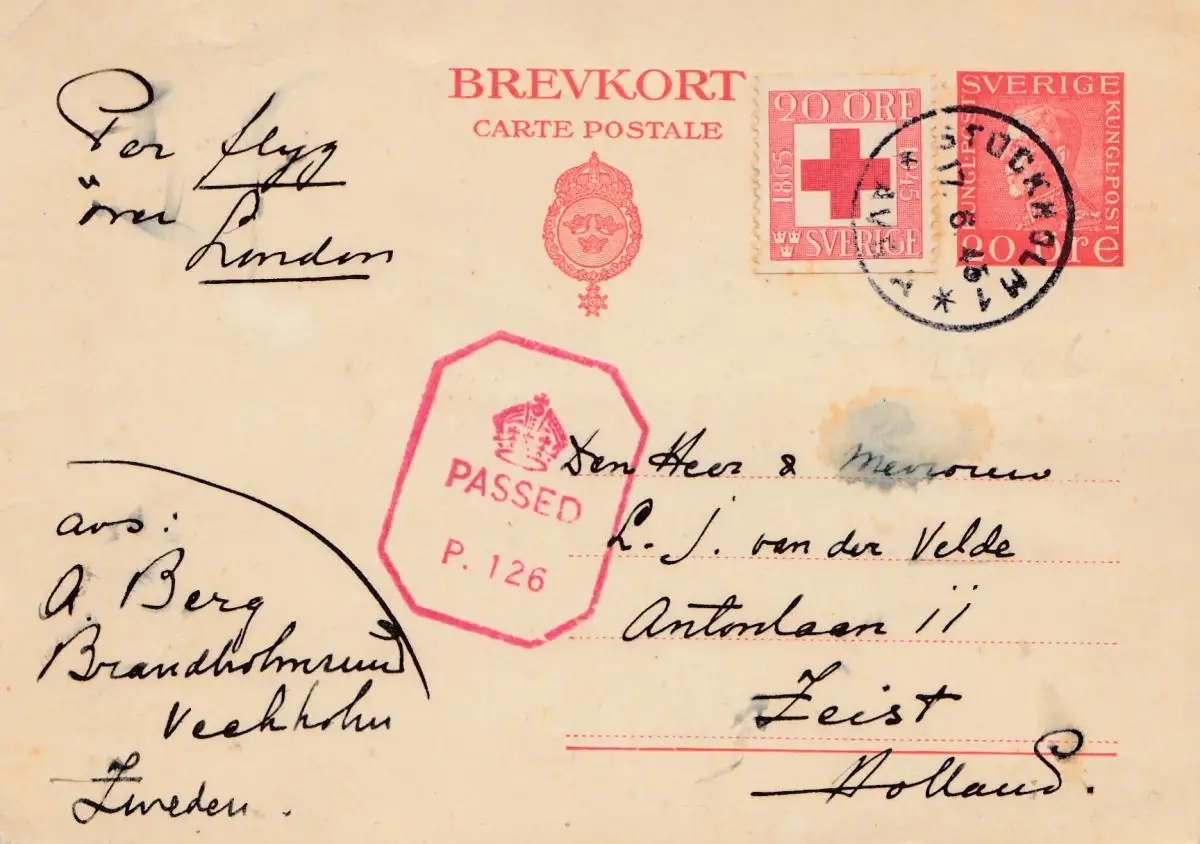 Per flyg
över
London
BREVKORT
CARTE POSTALE
20 ÖRE
1865
1945
SVERIGE
SVERIGE
KUNGL·POST
KUNGL·POST
20 ÖRE
STOCKHOLM 1
17. 6 45
AVG
PASSED
P. 126
Den Heer & Mevrouw
L. J. van der Velde
Antonlaan 11
Zeist
Holland.
avs:
A. Berg
Brandholmsund
Veckholm
Zweden.